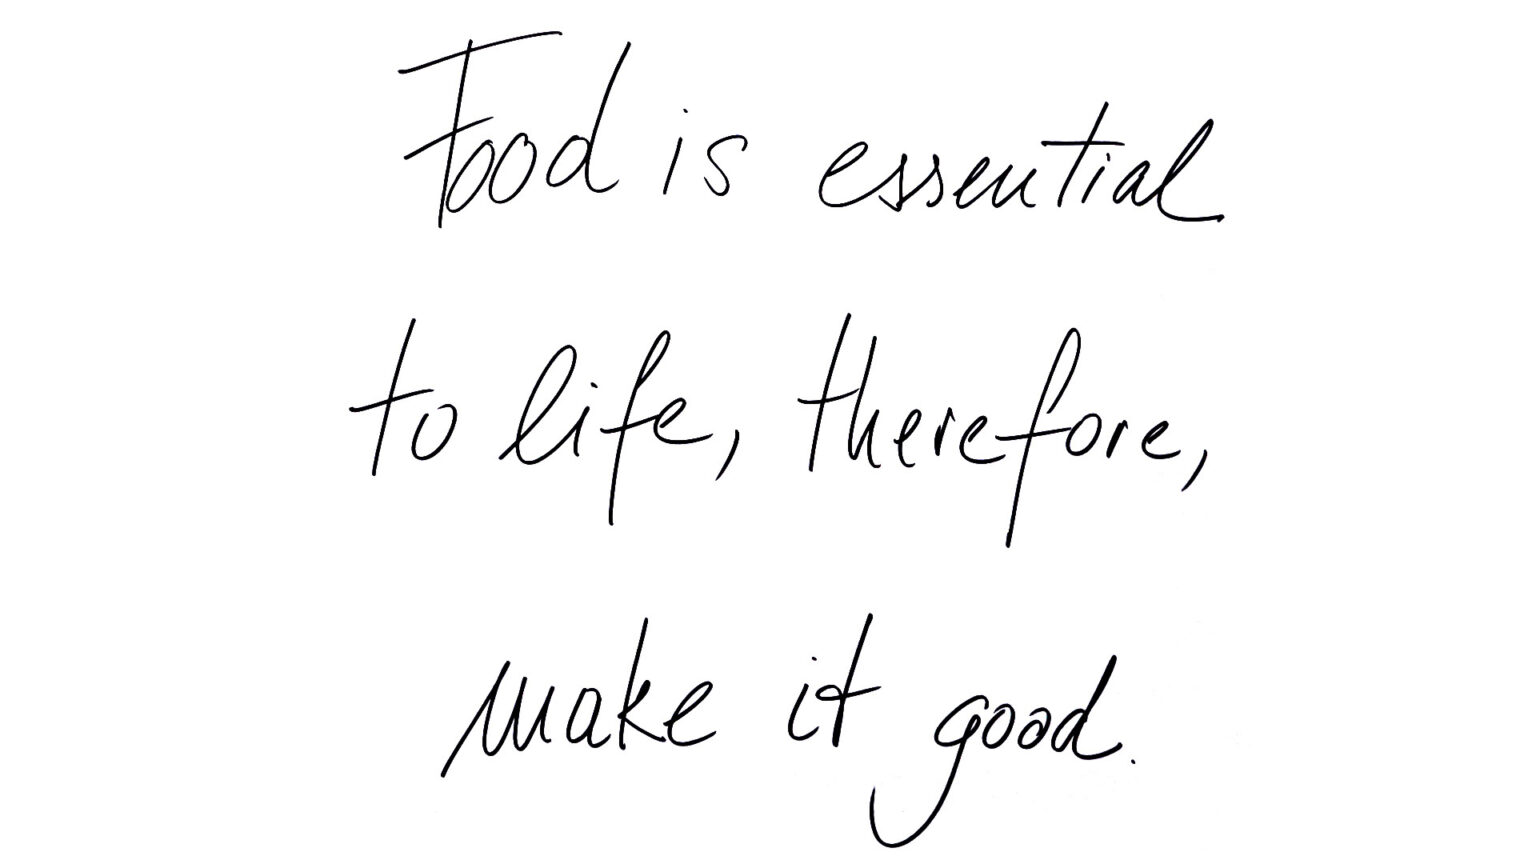 Food is essential
to life, therefore,
make it good.